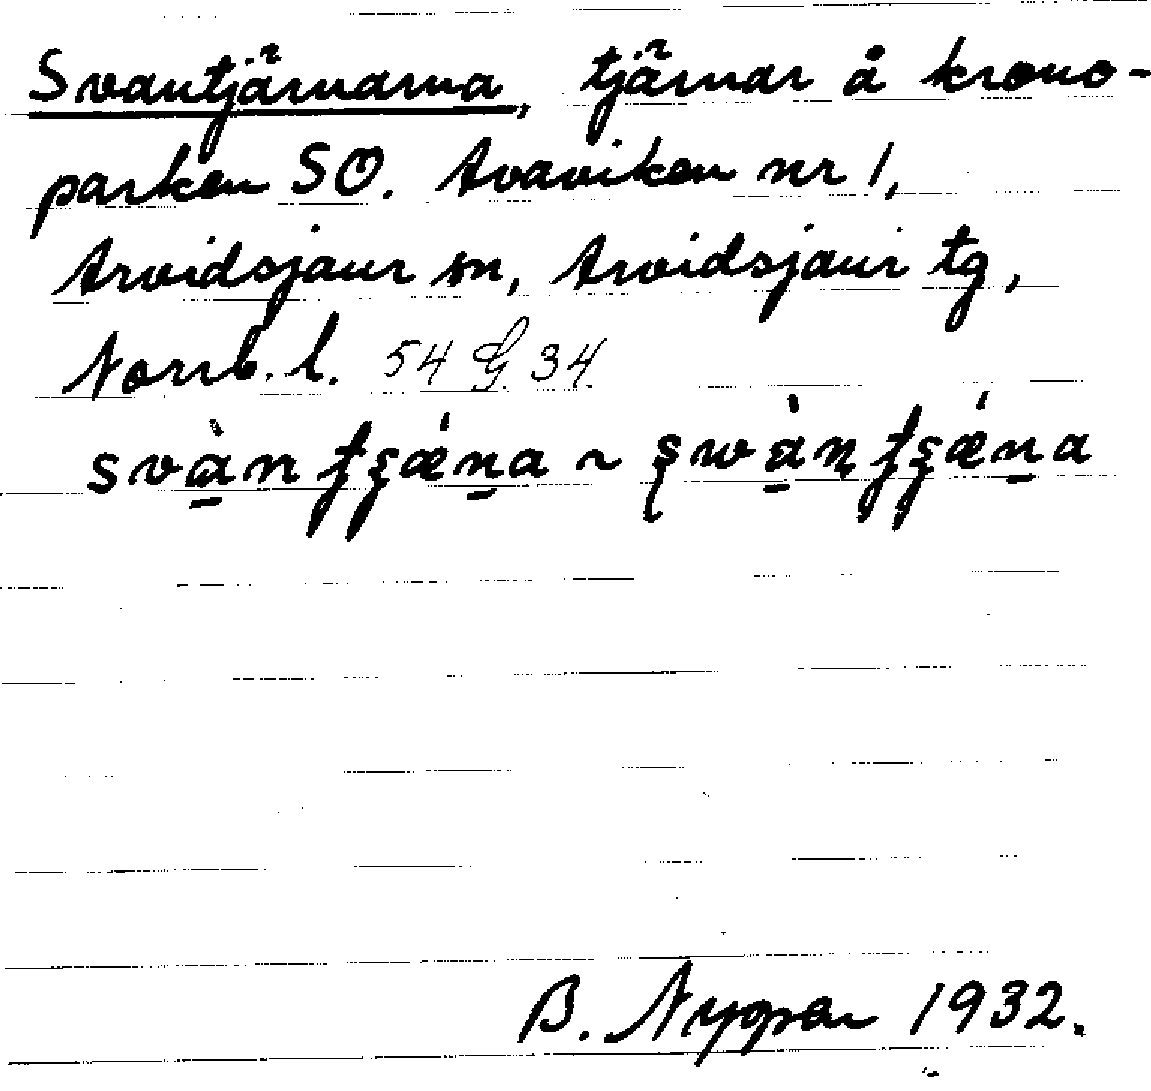 Svantjärnarna, tjärnar å krono-
parken SO. Avaviken nr 1,
Arvidsjaur sn, Arvidsjaur tg,
Norrb. l. 54 G 34
B. Nygren 1932.